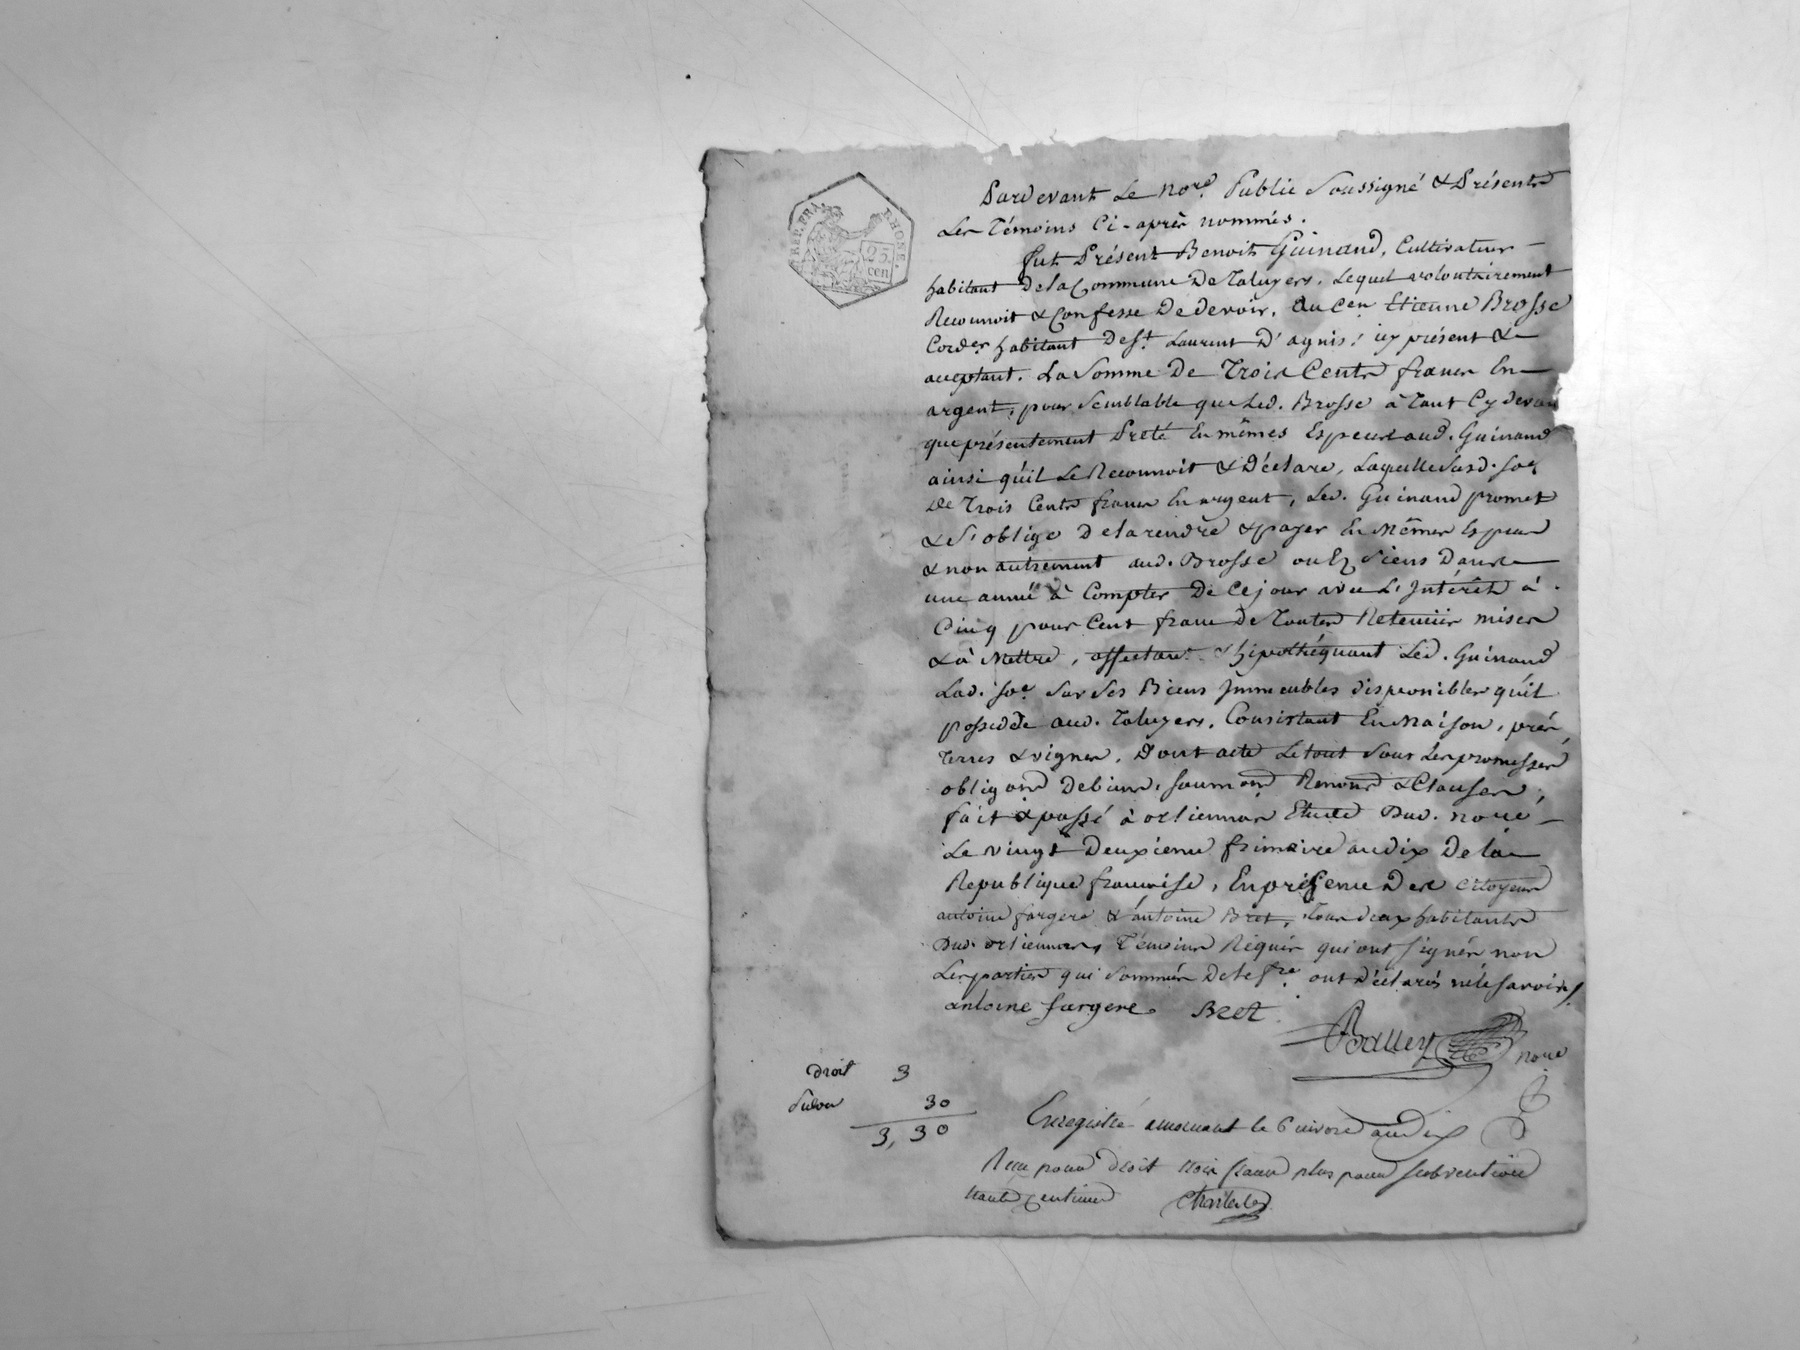 REP. FRA. RHONE.
25.
cen
Pardevant Le no.re Public Soussigné & Présents
Les Témoins Ci-après nommés.
fut Présent Benoit Guinand, Cultivateur
habitant de la Commune De Taluyers, Lequel volontairement
Reconnoit & Confesse De devoir, au Cen Etienne Brosse
Cord.er habitant de S.t Laurent D'agnis; icy présent &
acceptant. La Somme De Trois Cents francs En
argent, pour Semblable que Led. Brosse à Tant Cy devant
que présentement Preté En mêmes Especes aud. Guinand
ainsi qu'il Le Reconnoit & Déclare, Laquelle Susd. so.e
De Trois Cents francs En argent, Led. Guinand promet
& S'oblige De la rendre & payer En Mêmes Espces
& non autrement aud. Brosse ou Es Siens Dans
une année à Compter De Ce jour avec L'Intérêt à
Cinq pour Cent franc de Toutes Retenües mises
& à Mettre, affectant & hipothéquant Led. Guinand
Lad. so.e Sur Ses Biens Immeubles disponibles qu'il
possedde aud. Taluyers, Consistant En Maison, prés,
Terres & vignes, Dont acte Le tout Sous Les promesses
obligons De biens, soumons Renons & Clauses,
fait & passé à orliennas Etude Dud. nore
Le vingt Deuxieme frimaire an dix De la
Republique francoise, En présence Des Citoyens
antoine fargere & antoine Bret, Tous deux habitants
Dud. orliennas, Témoins Réquis qui ont signés non
Les parties qui Sommés De le f.re ont Déclarés ne le Savoir
antoine fargere Bret
Balley nore
droit 3
Subon 30
3, 30
Enregistré a mornant le 6 nivose an dix
Recu pour Droit trois francs plus pour subvention
trente centimes